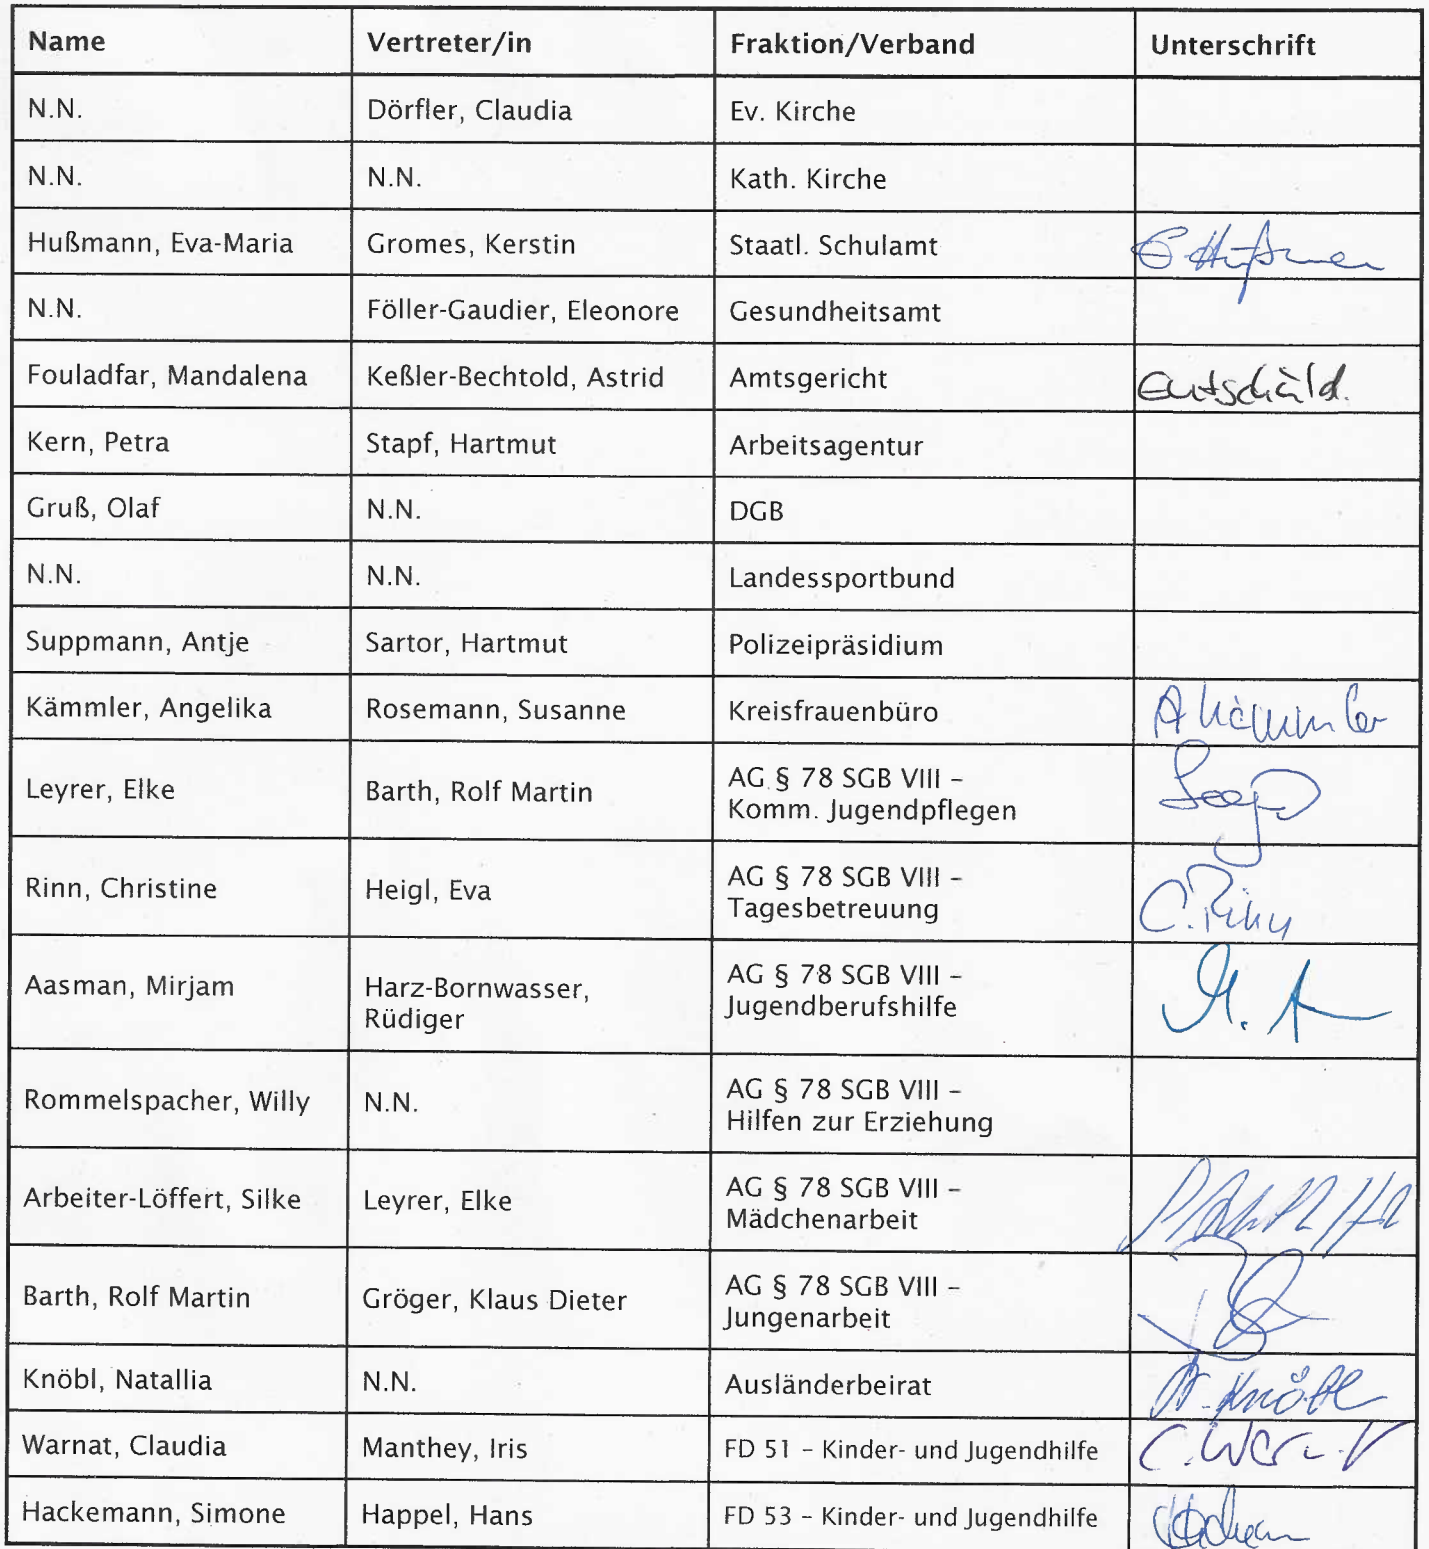 Name Vertreter/in Fraktion/Verband Unterschrift
N.N. Dörfler, Claudia Ev. Kirche
N.N. N.N. Kath. Kirche
Hußmann, Eva-Maria Gromes, Kerstin Staatl. Schulamt E Hußmann
N.N. Föller-Gaudier, Eleonore Gesundheitsamt
Fouladfar, Mandalena Keßler-Bechtold, Astrid Amtsgericht Entschuld.
Kern, Petra Stapf, Hartmut Arbeitsagentur
Gruß, Olaf N.N. DGB
N.N. N.N. Landessportbund
Suppmann, Antje Sartor, Hartmut Polizeipräsidium
Kämmler, Angelika Rosemann, Susanne Kreisfrauenbüro A Kämmler
Leyrer, Elke Barth, Rolf Martin AG § 78 SGB VIII –
Komm. Jugendpflegen
Rinn, Christine Heigl, Eva AG § 78 SGB VIII –
Tagesbetreuung C. Rinn
Aasman, Mirjam Harz-Bornwasser,
Rüdiger AG § 78 SGB VIII –
Jugendberufshilfe M. A
Rommelspacher, Willy N.N. AG § 78 SGB VIII –
Hilfen zur Erziehung
Arbeiter-Löffert, Silke Leyrer, Elke AG § 78 SGB VIII –
Mädchenarbeit
Barth, Rolf Martin Gröger, Klaus Dieter AG § 78 SGB VIII –
Jungenarbeit
Knöbl, Natallia N.N. Ausländerbeirat N. Knöbl
Warnat, Claudia Manthey, Iris FD 51 – Kinder- und Jugendhilfe C. Warnat
Hackemann, Simone Happel, Hans FD 53 – Kinder- und Jugendhilfe